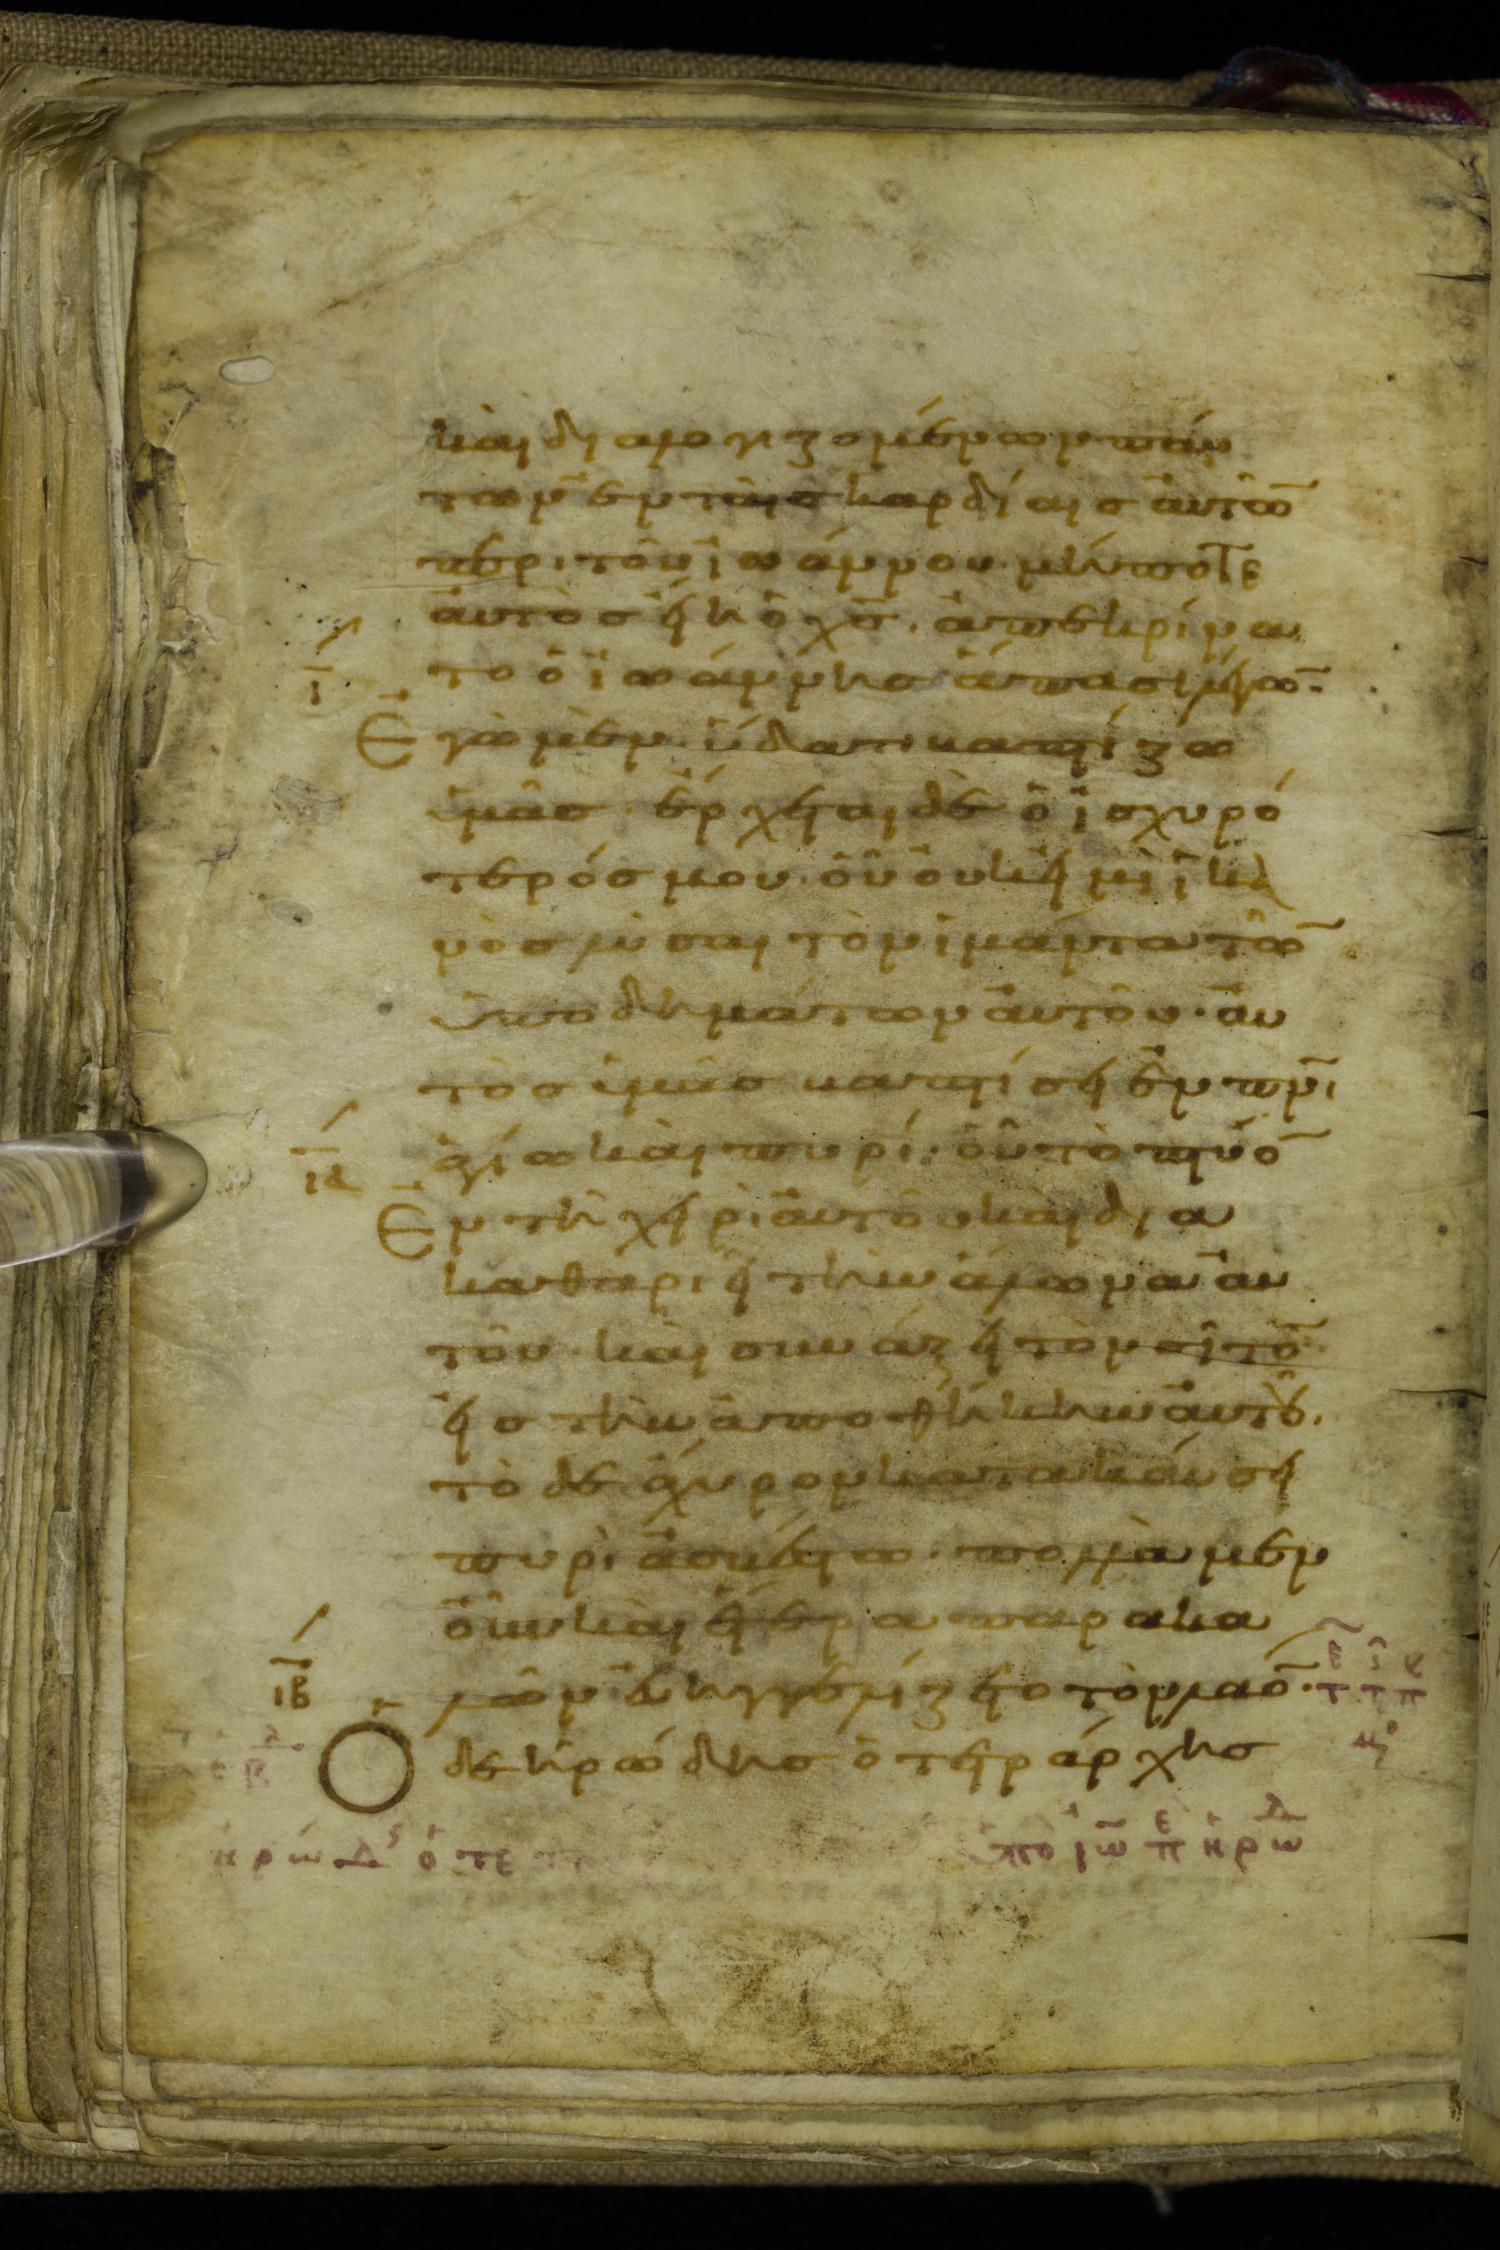 καὶ διαλογιζομένων πάν
των ἐν ταῖς καρδίαις αὐτῶ̅
περὶ τοῦ ἰωάννου· μήποτε
αὐτὸς εἴη ὁ χ̅ς̅. ἀπεκρίνα
το ὁ ἰωάννης ἅπασι λέγω̅·
ι̅
Ἐγὼ μὲν ὕδατι βαπτίζω
ὑμᾶς· ἔρχεται δὲ ὁ ἰσχυρό
τερός μου· οὗ οὐκ εἰμὶ ἱκα
νὸς λύσαι τὸν ἱμάντα τῶ̅
ὑποδημάτων αὐτοῦ· αὐ
τὸς ὑμᾶς βαπτίσει ἐν π̅ν̅ι̅
ι̅α̅
ἁγίω καὶ πυρί· οὗ τὸ πτύο̅
Ἐν τῆ χειρὶ αὐτοῦ καὶ δια
καθαριεῖ τὴν ἅλωνα αὐ
τοῦ· καὶ συνάξει τὸν σῖτο̅
εἰς τὴν ἀποθήκην αὐτοῦ.
τὸ δὲ ἄχυρον κατακαύσει
πυρὶ ἀσβέστω· πολλὰ μὲν
οὖν καὶ ἕτερα παρακα
ι̅β̅
λῶν εὐηγγελίζετο τὸν λαό̅·
Ὁ δὲ ἡρώδης ὁ τετράρχης